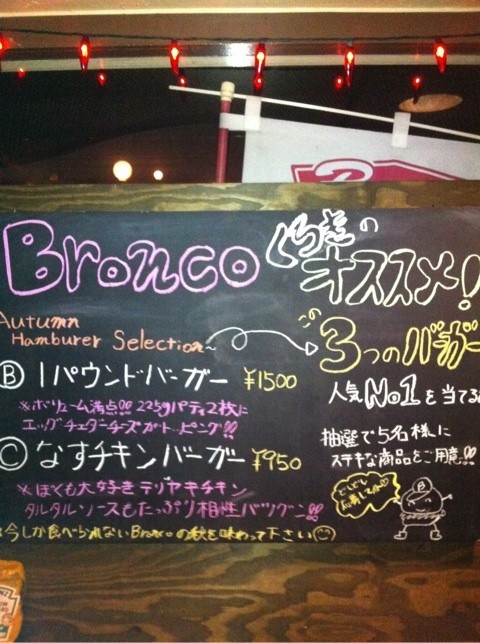 Bronco
のオススメ!
Autumn
Hamburer Selection~
3つのバーガー
Ⓑ 1パウンドバーガー ¥1500
人気No1を当てる
※ボリューム満点!! 225gパティ2枚に
エッグチェダーチーズがトッピング!!
抽選で5名様に
ステキな商品をご用意!!
Ⓒ なすチキンバーガー ¥950
※ぼくも大好きテリヤキチキン
タルタルソースもたっぷり相性バツグン!!
どんどん
今しか食べられないBroncoの秋を味わって下さい
B
HEINZ